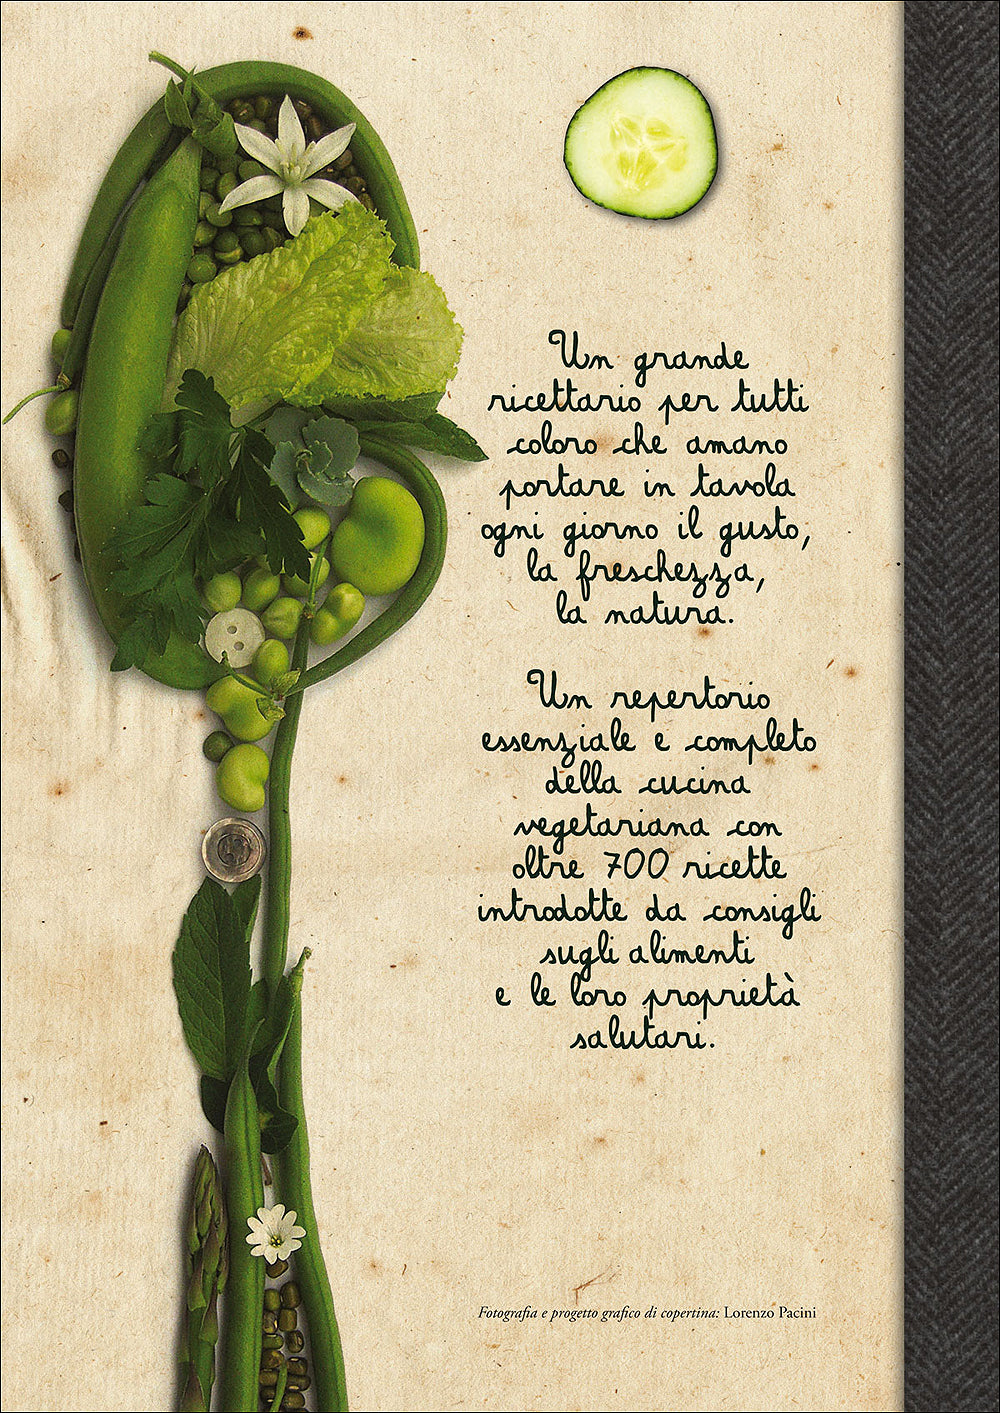 Un grande
ricettario per tutti
coloro che amano
portare in tavola
ogni giorno il gusto,
la freschezza,
la natura.
Un repertorio
essenziale e completo
della cucina
vegetariana con
oltre 700 ricette
introdotte da consigli
sugli alimenti
e le loro proprietà
salutari.
Fotografia e progetto grafico di copertina: Lorenzo Pacini